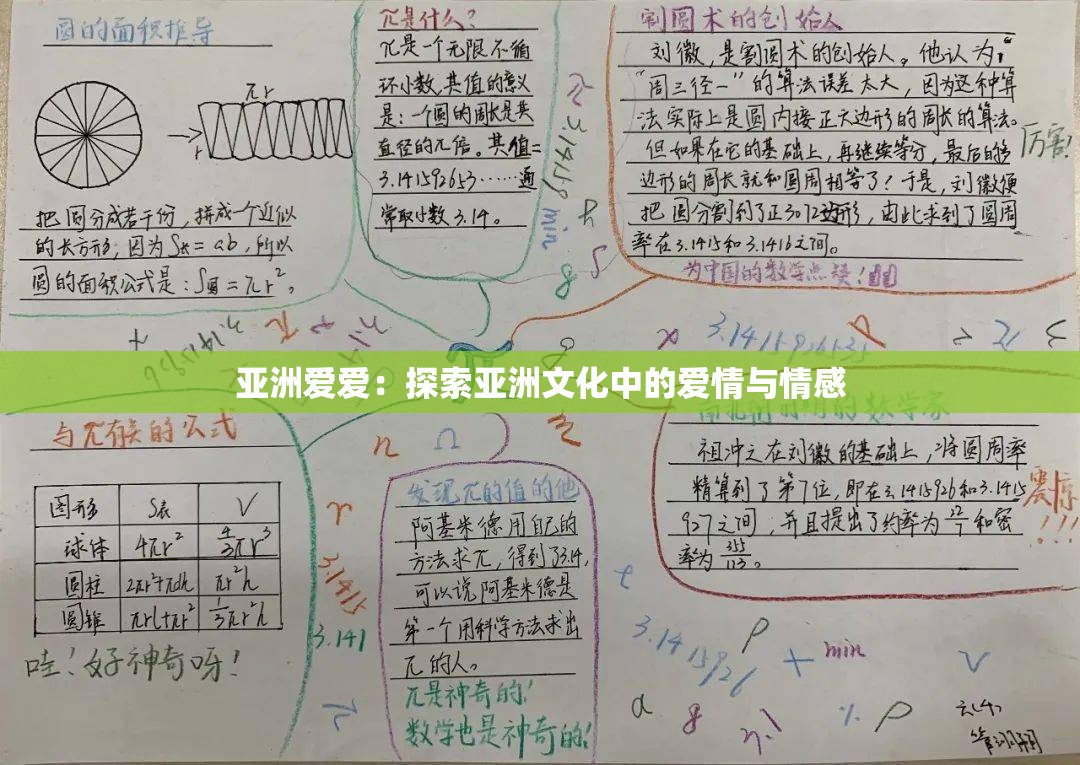 圆的面积推导
πr
r
把圆分成若干份，拼成一个近似
的长方形；因为S长=ab，所以
圆的面积公式是：S圆=πr²。
π是什么？
π是一个无限不循
环小数，其值的意义
是：一个圆的周长是其
直径的π倍。其值=
3.141592653……通
常取小数3.14。
割圆术的创始人
刘徽，是割圆术的创始人。他认为：“
“周三径一”的算法误差太大，因为这种算
法实际上是圆内接正六边形的周长的算法。
但如果在它的基础上，再继续等分，最后的多
边形的周长就和圆周相等了！于是，刘徽便
把圆分割到了正3072边形，由此求到了圆周
率在3.1415和3.1416之间。
厉害！
为中国的数学点赞！
π 3.14159 min
3.1415926535
亚洲爱爱：探索亚洲文化中的爱情与情感
与π有关的公式
图形 S表 V
球体 4πr² 4/3πr³
圆柱 2πr²+πdh πr²h
圆锥 πrl+πr² 1/3πr²h
哇！好神奇呀！
n Ω
r
3.1415
3.141
π
发现π的值的他
阿基米德用自己的
方法求π，得到了3.14，
可以说阿基米德是
第一个用科学方法求出
π的人。
π是神奇的！
数学也是神奇的！
的数学家
祖冲之在刘徽的基础上，将圆周率
精算到了第7位，即在3.1415926和3.1415
927之间，并且提出了约率为22/7和密
率为355/113。
震惊
!!!
t
3.1415926
ρ
+ min
V
a 8
% ρ